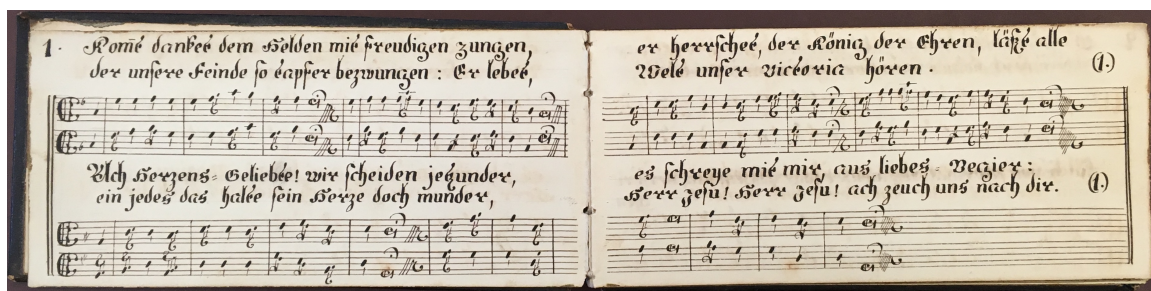 1. Kom̅e danket dem Helden mit freudigen zungen,
der unsere Feinde so tapfer bezwungen: Er lebet,
Ach Herzens=Geliebte! wir scheiden jetzunder,
ein jedes das halte sein Herze doch munder,
er herrschet, der König der Ehren, läßt alle
Welt unser Victoria hören. (1.)
es schreye mit mir, aus liebes=Begier:
Herr Jesu! Herr Jesu! ach zeuch uns nach dir. (1.)